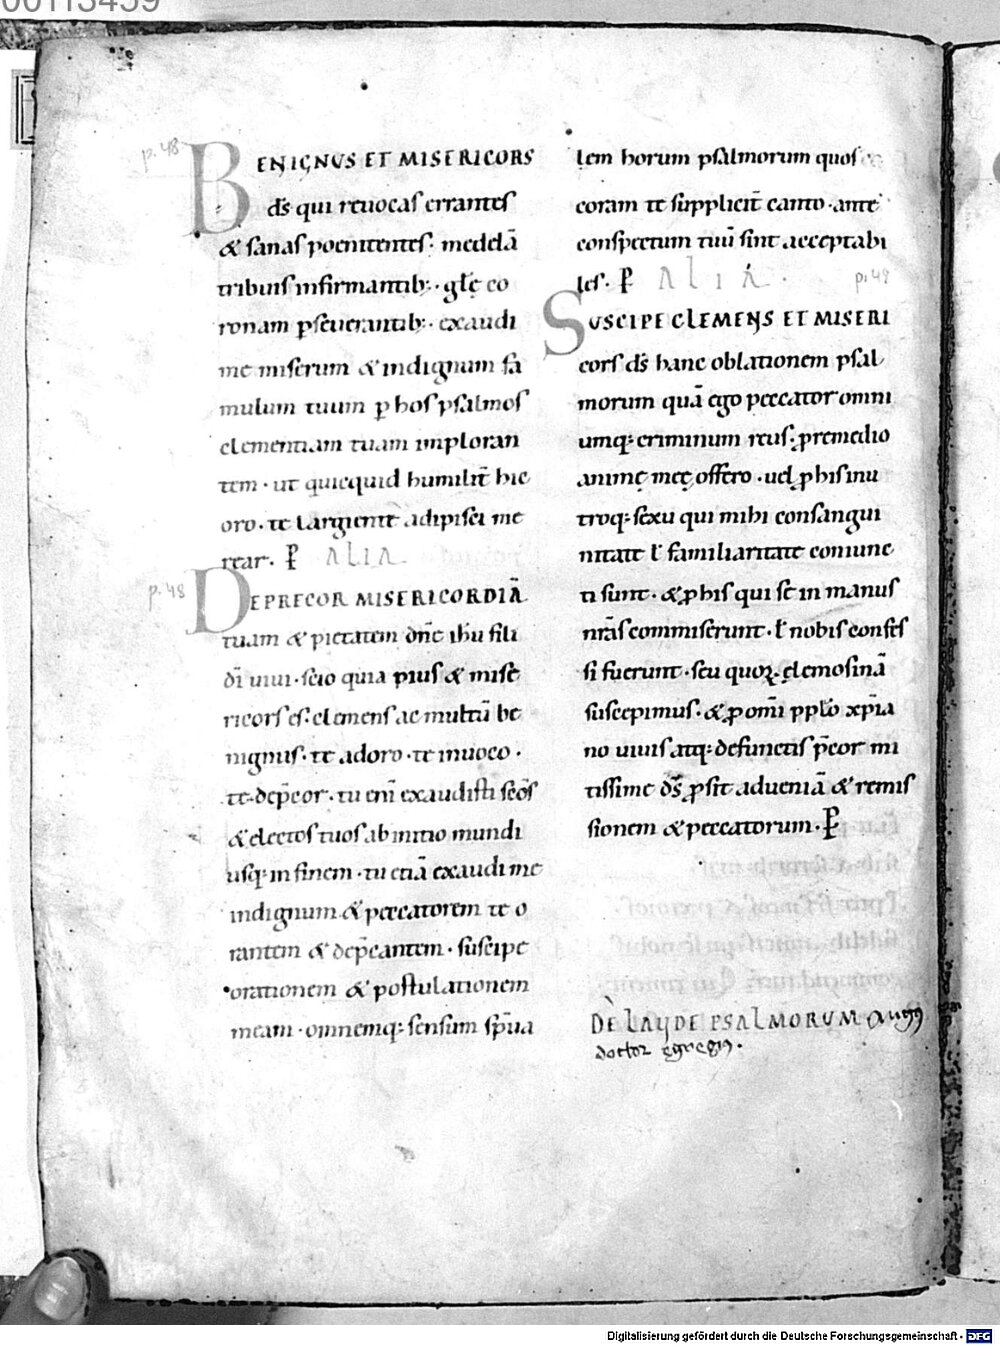 00113459
p. 48
BENIGNUS ET MISERICORS
d̄s qui reuocas errantes
& sanas poenitentes. medelā
tribuis infirmantib:. glę co
ronam p̱seuerantib:. exaudi
me miserum & indignum fa
mulum tuum p̱ hos psalmos
clementiam tuam imploran
tem. ut quicquid humilit̄ hic
oro. te largiente adipisci me
rear. P̱ ALIA
p. 48
DEPRECOR MISERICORDIĀ
tuam & pietatem dn̄e ih̄u fili
dī uiui. scio quia pius & mise
ricors es. clemens ac multū be
nignus. te adoro. te inuoco.
te dep̄cor. tu enī exaudisti sc̄os
& electos tuos ab initio mundi
usq: in finem. tu etiā exaudi me
indignum & peccatorem te o
rantem & dep̄cantem. suscipe
orationem & postulationem
meam. omnemq: sensum sp̄ua
lem horum psalmorum quos
coram te supplicit̄ canto. ante
conspectum tuū sint acceptabi
les. P̱ ALIA. p. 49
SUSCIPE CLEMENS ET MISERI
cors d̄s hanc oblationem psal
morum quā ego peccator omni
umq: criminum reus. p̱ remedio
animę meę offero. uel p̱ his in u
troq: sexu qui mihi consangui
nitate ł familiaritate coniunc
ti sunt. & p̱ his qui se in manus
nr̄as commiserunt. ł nobis confes
si fuerunt. seu quoꝝ elemosinā
suscepimus. & p̱ om̄i pplo xp̄ia
no uiuis atq: defunctis p̄cor mi
tissime d̄s p̱sit ad ueniā & remis
sionem & peccatorum. P̱
DE LAUDE PSALMORUM aug9
doctor egregi9.
Digitalisierung gefördert durch die Deutsche Forschungsgemeinschaft - DFG